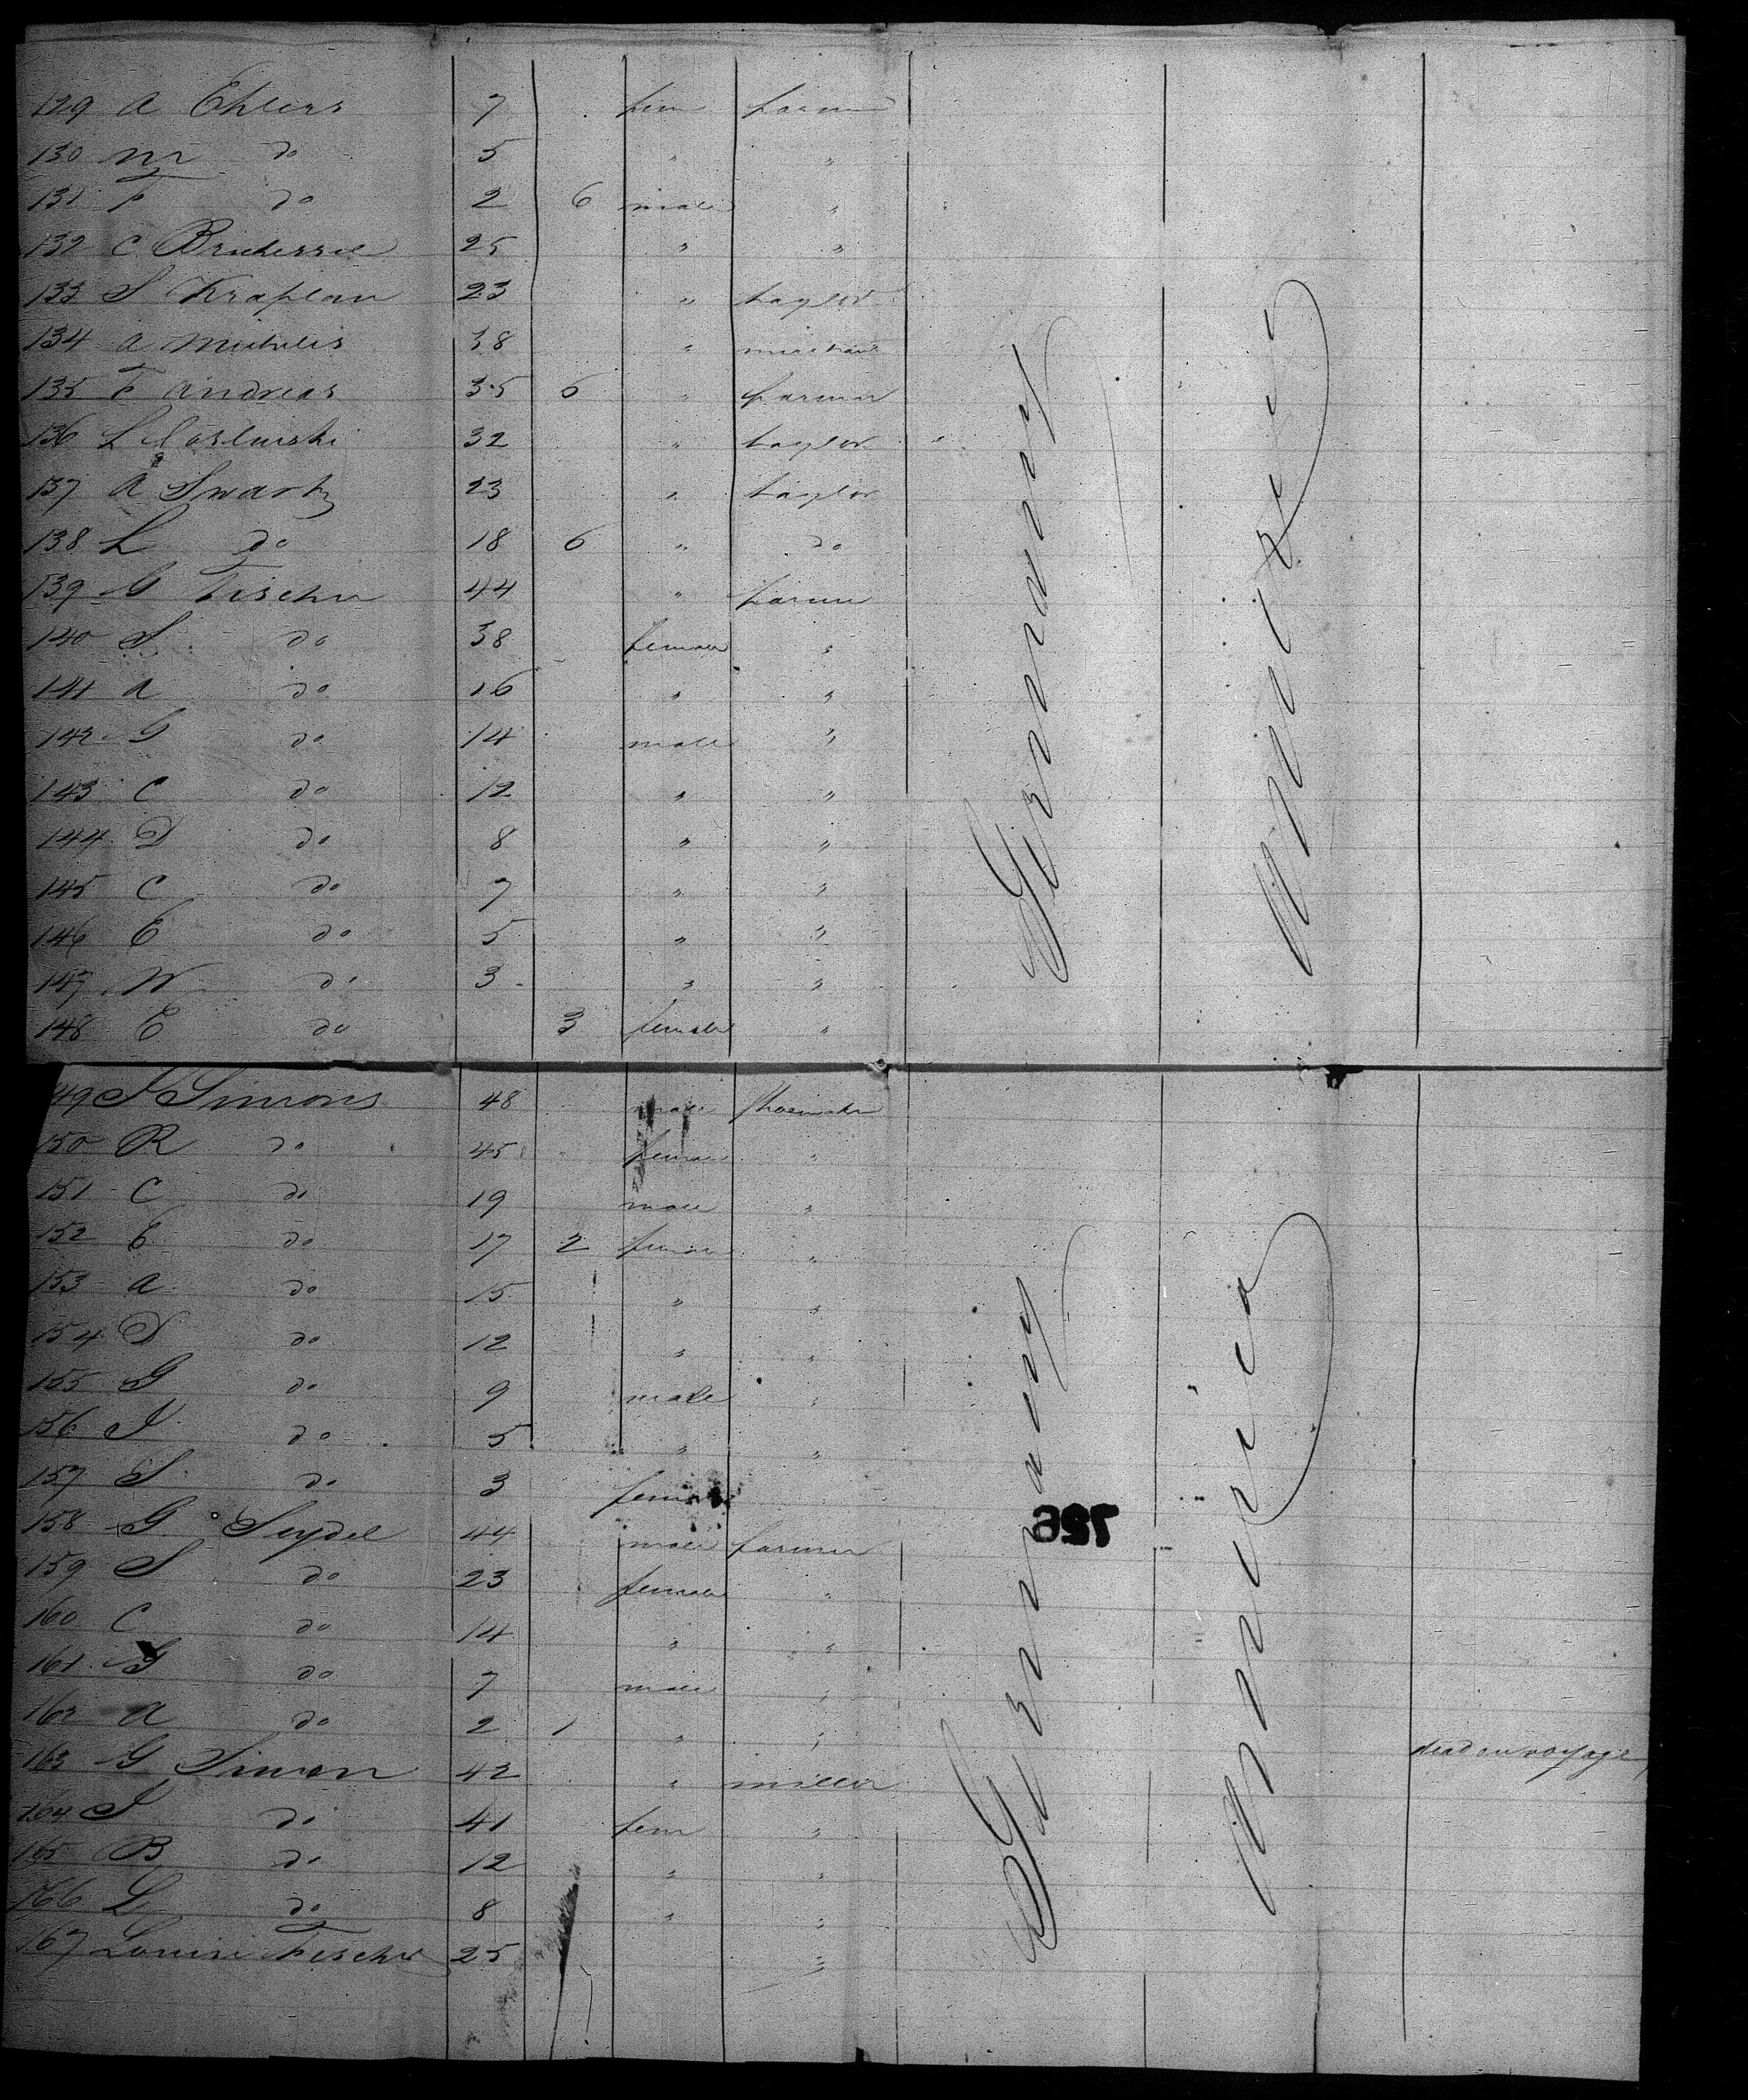 129 A Ehlers 7 fem farmer
130 M do 5 " "
131 F do 2 6 male "
132 C 25 " "
133 S Kraplan 23 " taylor
134 A Michelis 38 "
135 F Andreas 35 6 " farmer
136 L 32 " taylor
137 A Swartz 23 " taylor
138 L do 18 6 " do
139 G Fischer 44 " farmer
140 S do 38 female "
141 A do 16 " "
142 G do 14 male "
143 C do 12 " "
144 D do 8 " "
145 C do 7 " "
146 E do 5 " "
147 W do 3 " "
148 E do 3 female "
Germany
America
149 J Simons 48 male Shoemaker
150 R do 45 female "
151 C do 19 male "
152 E do 17 2 female "
153 A do 15 " "
154 S do 12 " "
155 G do 9 male "
156 J do 5 " "
157 S do 3 female
158 G Seydel 44 male farmer
159 S do 23 female "
160 C do 14 " "
161 G do 7 male "
162 A do 2 1 " " dead on voyage
163 G Simon 42 " miller
164 J do 41 fem "
165 B do 12 " "
166 L do 8 " "
167 Louise Fischer 25 "
Germany
America